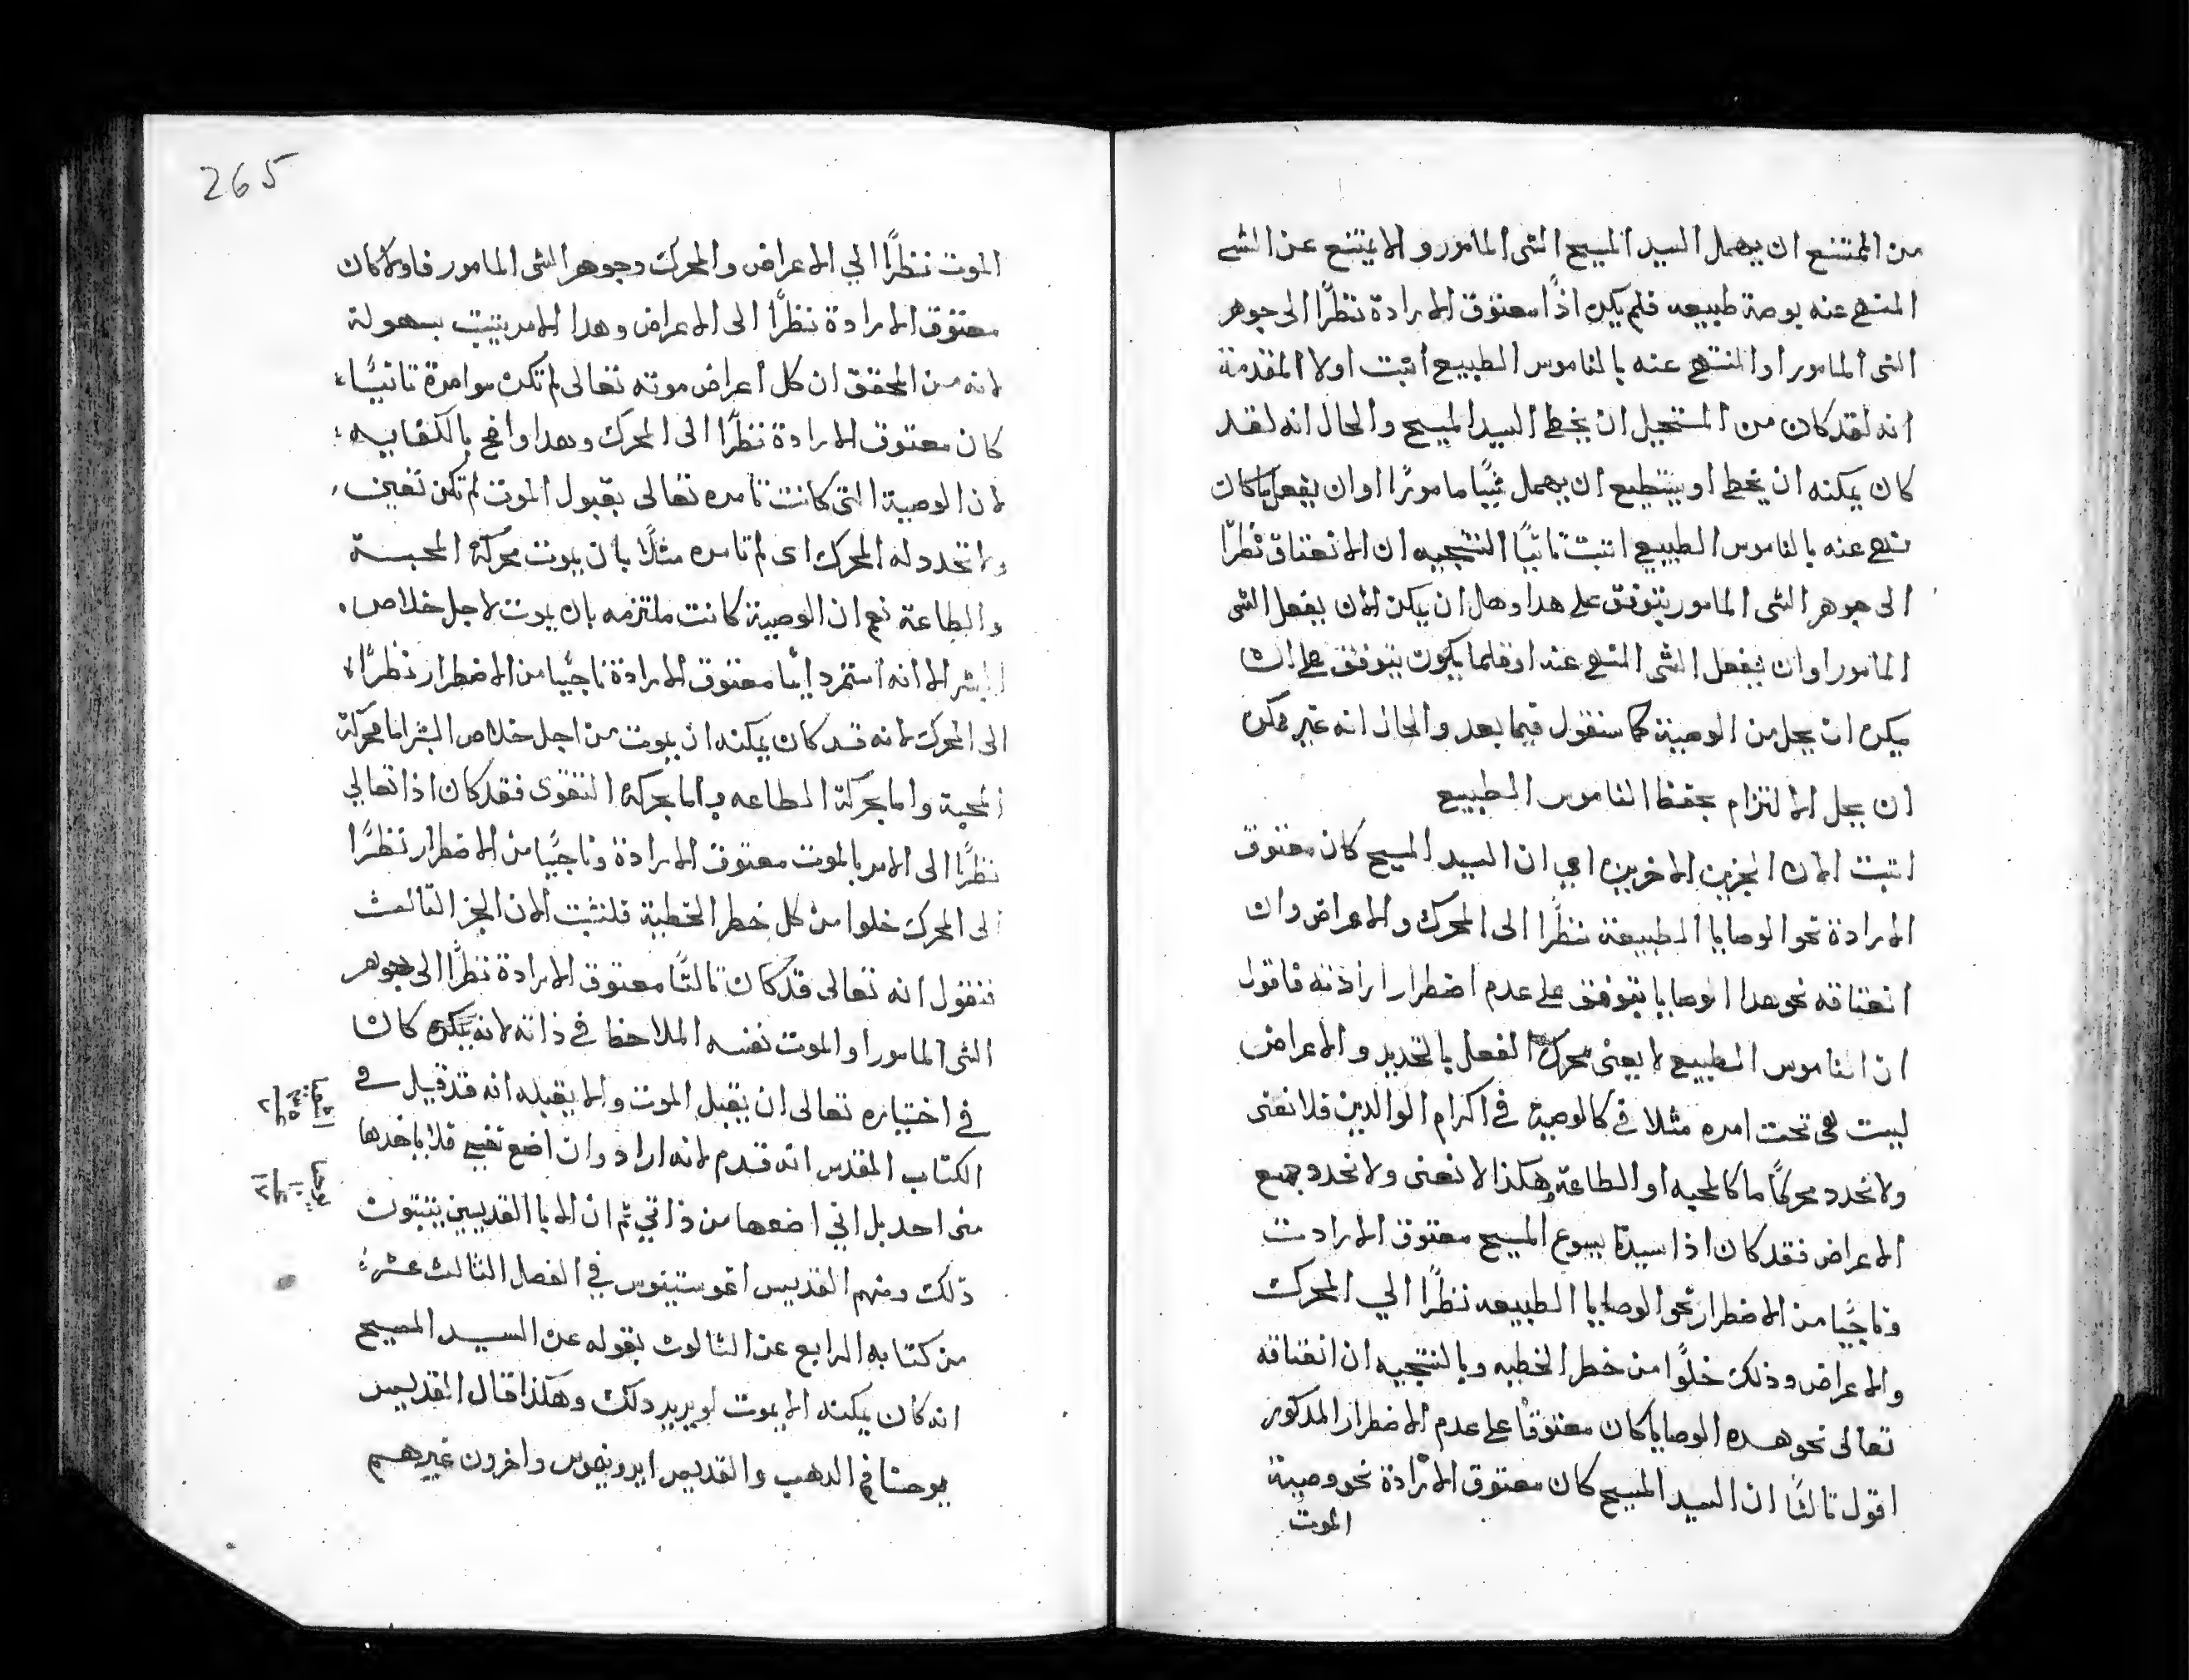 من الممتنع ان يهمل السيد المسيح الشي المامور و الا يمتنع عن الشي
المنهي عنه بوصية طبيعيه فلم يكن اذًا معتوق الارادة نظرًا الى جوهر
الشي المامور او المنهي عنه بالناموس الطبيعي اثبت اولا المقدمة
انه لقد كان من المستحيل ان يخطي السيد المسيح والحال انه لقد
كان يمكنه ان يخطي او يستطيع ان يهمل شيًا مامورًا او ان يفعل ما كان
نهي عنه بالناموس الطبيعي اثبت ثانيًا النتيجيه ان الانعتاق نظرًا
الى جوهر الشي المامور يتوقف على هذا وهل ان يكن الان يفعل الشي
المامور او ان يفعل الشي المنهي عنه او قلما يكون يتوقف على ان
يمكن ان يحل من الوصية كما سنقول فيما بعد والحال انه غير ممكن
ان يحل الالتزام بحفظ الناموس الطبيعي
اثبت الان الجزين الاخرين اعي ان السيد المسيح كان معتوق
الارادة نحو الوصايا الطبيعة نظرًا الى المحرك والاعراض وان
انعتاقه نحو هذا الوصايا يتوقف على عدم اضطرار ارادته فاقول
ان الناموس الطبيعي لا يعنى محرك الفعل بالتحديد والاعراض
ليست هي تحت امره مثلا في كالوصية في اكرام الوالدين فلا نعنى
ولا تحدد محركًا ما كالمحبه او الطاعة وهكذا لا نعنى ولا تحدد جميع
الاعراض فقد كان اذا سيدنا يسوع المسيح معتوق الارادت
وناجيًا من الاضطرار نحو الوصايا الطبيعه نظرًا الي المحرك
والاعراض وذلك خلوًا من خطر الخطيه وبالنتيجيه ان انعتاقه
تعالى نحو هده الوصايا كان معتوقًا على عدم الاضطرار المدكور
اقول ثالثًا ان السيد المسيح كان معتوق الارادة نحو وصية
الموت
265
الموت نظرًا الي الاعراض والمحرك وجوهر الشي المامور فاولا كان
معتوق الارادة نظرًا الى الاعراض وهدا الامر يتبت بسهولة
لانه من المحقق ان كل اعراض موته تعالى لم تكن موامرة ثانيًا
كان معتوق الارادة نظرًا الى المحرك وهدا واضح بالكفايه
لان الوصية التي كانت تامره تعالى بقبول الموت لم تكن تعين
ولا تحدد له المحرك اى لم تامره مثلًا بان يموت محركة المحبة
والطاعة نعم ان الوصية كانت ملتزمه بان يموت لاجل خلاص
البشر الا انه استمر دايمًا معتوق الارادة ناجيًا من الاضطرار نظرًا
الى المحرك لانه قد كان يمكنه ان يموت من اجل خلاص البشر اما محركة
المحبة واما بحركة الطاعه واما بحركة التقوى فقد كان اذا تعالي
نظرًا الى الامر بالموت معتوق الارادة وناجيًا من الاضطرار نظرًا
الى المحرك خلوا من كل خطر الخطية فلنثبت الان الجز الثالث
فنقول انه تعالى قد كان ثالثًا معتوق الارادة نظرًا الى جوهر
الشي المامور او الموت نفسه الملاحظ في ذاته لانه كان
في اختياره تعالى ان يقبل الموت والا يقبله انه قد قيل في
الكتاب المقدس انه قدم لانه اراد وان اضع نفسي فلا ياخدها
منى احد بل اني اضعها من ذاتي ثم ان الابا القديسين يتبتون
ذلك ومنهم القديس اغوستينوس في الفصل الثالث عشر
من كتابه الرابع عن الثالوث بقوله عن السيد المسيح
انه كان يمكنه الا يموت لو يريد دلك وهكذا قال القديس
يوحنا فم الدهب والقديس ايرونيموس واخرون غيرهم
اشعيا
يوحنا